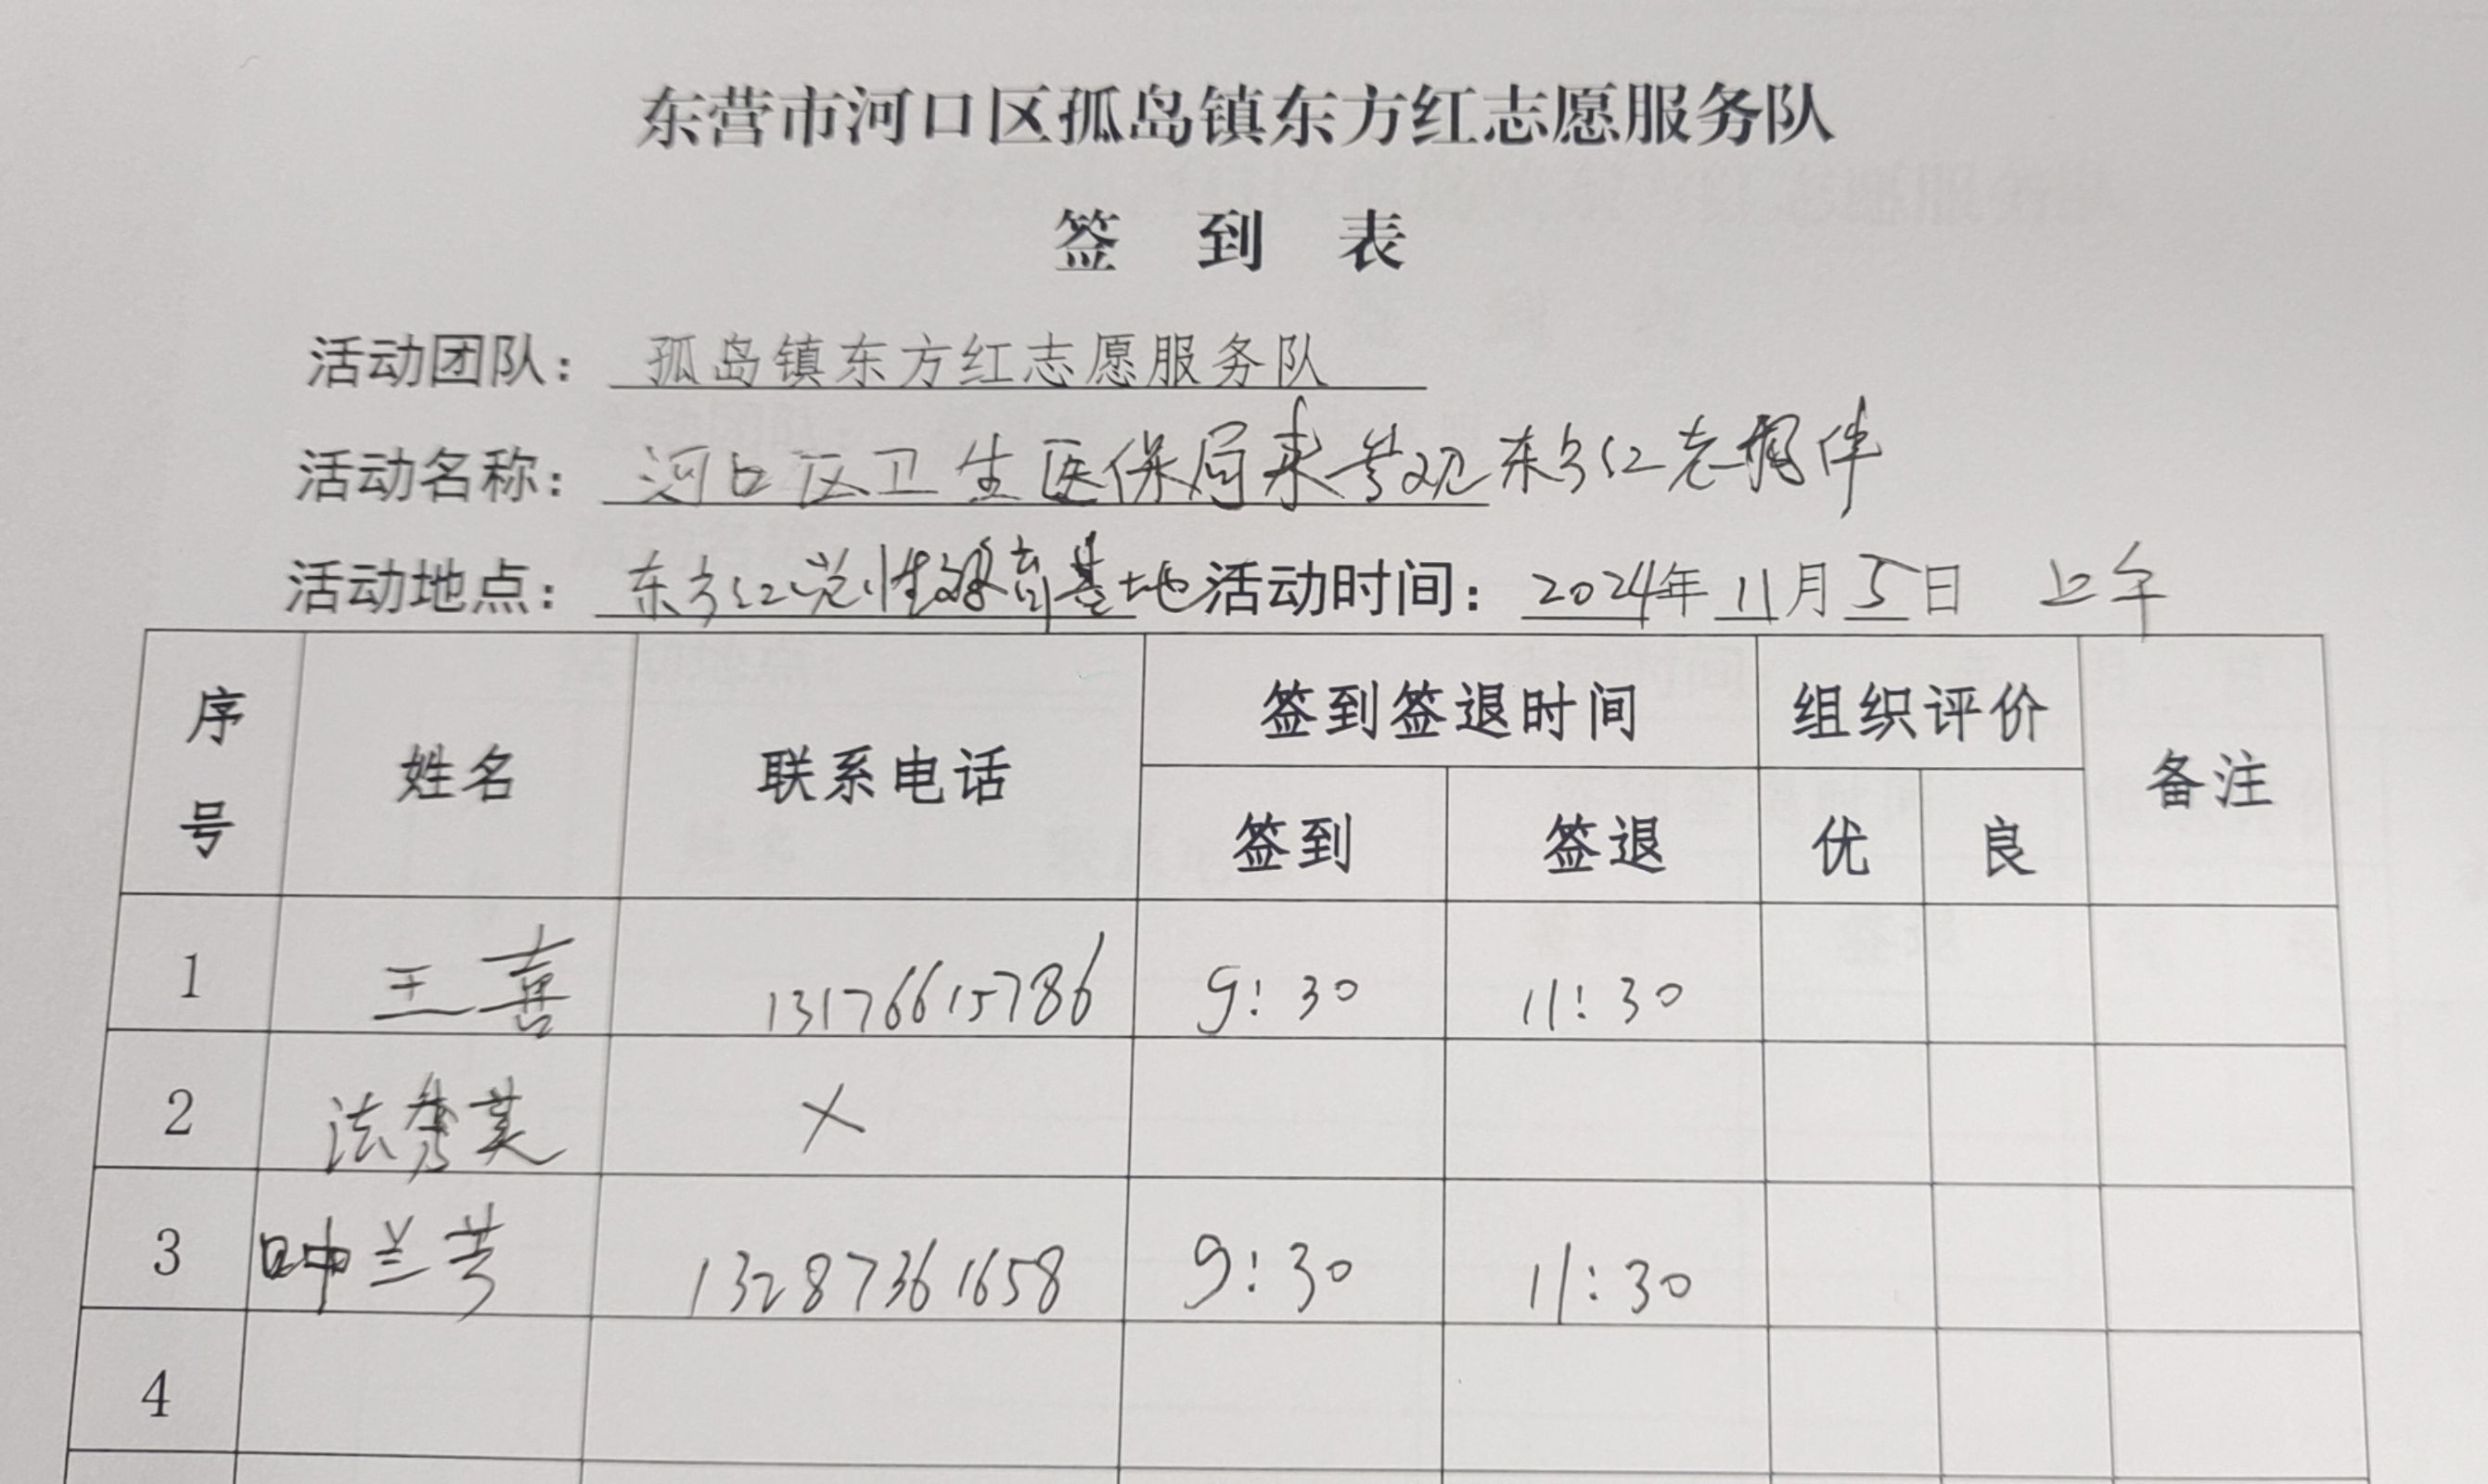 东营市河口区孤岛镇东方红志愿服务队
签 到 表
活动团队：孤岛镇东方红志愿服务队
活动名称：河口区卫生医保局来参观东方红老物件
活动地点：东方红党性教育基地 活动时间：2024年11月5日 上午
序号 姓名 联系电话 签到签退时间 组织评价 备注
签到 签退 优 良
1 王喜 13176615786 9:30 11:30
2 法秀英 ×
3 兰芳 13287361658 9:30 11:30
4